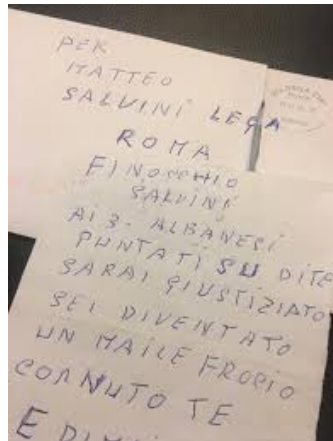 PER
MATTEO
SALVINI LEGA
ROMA
FINOCCHIO
SALVINI
AI 3 - ALBANESI
PUNTATI SU DITE
SARAI GIUSTIZIATO
SEI DIVENTATO
UN MAILE FROCIO
CORNUTO TE
E